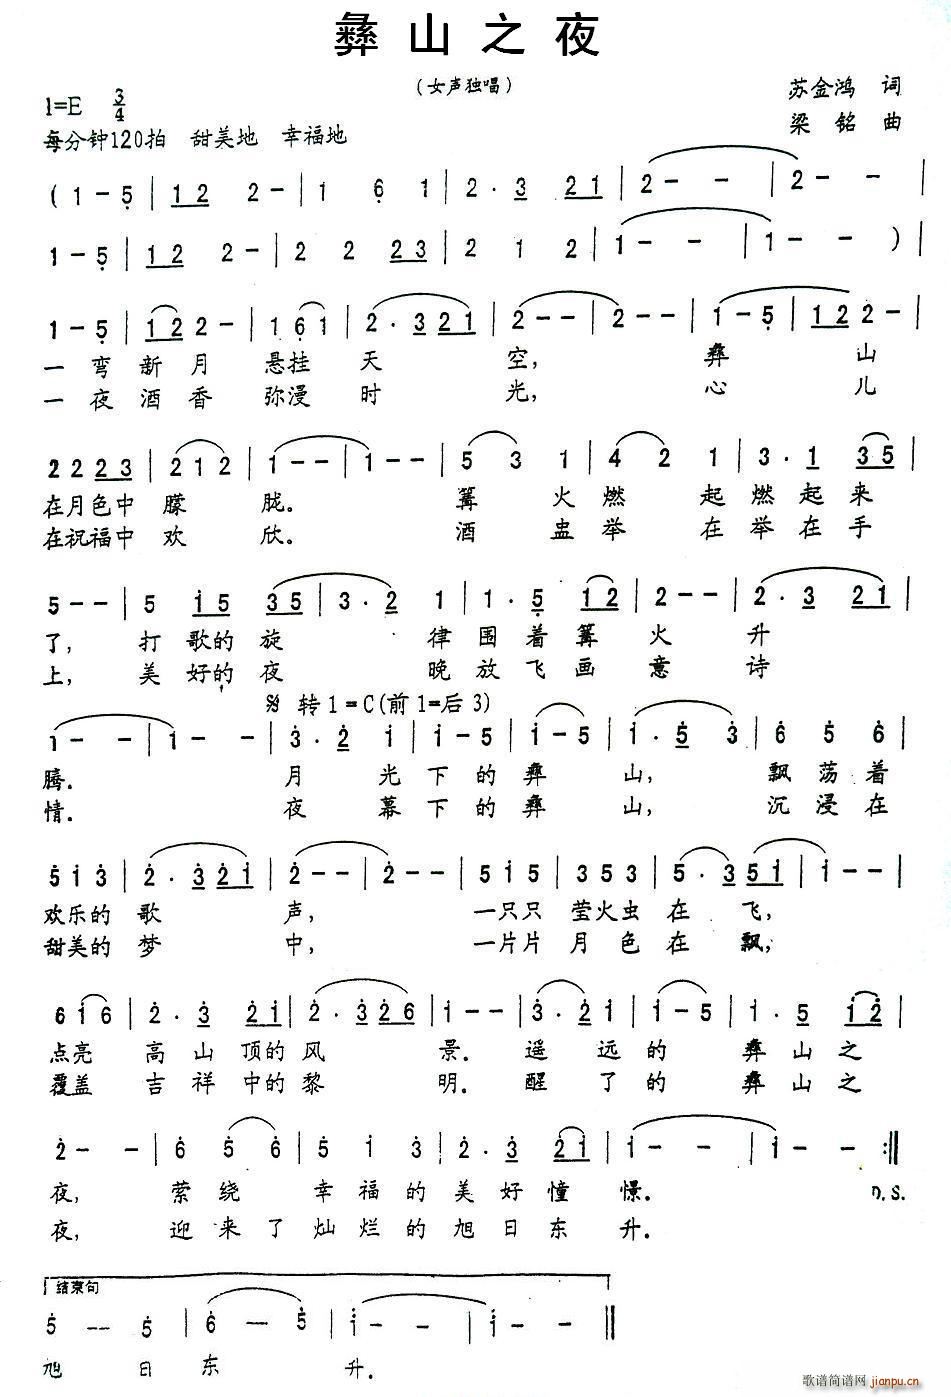 彝山之夜
(女声独唱)
1=E 3/4
苏金鸿 词
每分钟120拍 甜美地 幸福地
梁铭 曲
( 1 - 5 | 1 2 2 - | 1 6 1 | 2 · 3 2 1 | 2 - - | 2 - - |
1 - 5 | 1 2 2 - | 2 2 2 3 | 2 1 2 | 1 - - | 1 - - ) |
1 - 5 | 1 2 2 - | 1 6 1 | 2 · 3 2 1 | 2 - - | 2 - - | 1 - 5 | 1 2 2 - |
一弯新月 悬挂天空, 彝山
一夜酒香 弥漫时光, 心儿
2 2 2 3 | 2 1 2 | 1 - - | 1 - - | 5 3 1 | 4 2 1 | 3 · 1 3 5 |
在月色中朦胧。 篝火燃起燃起来
在祝福中欢欣。 酒盅举在举在手
5 - - | 5 1 5 3 5 | 3 · 2 1 | 1 · 5 1 2 | 2 - - | 2 · 3 2 1 |
了, 打歌的旋律围着篝火升
上, 美好的夜晚放飞画意诗
转1=C(前1=后3)
1 - - | 1 - - | 3 · 2 1 | 1 - 5 | 1 - 5 | 1 · 5 3 | 6 5 6 |
腾。 月光下的彝山, 飘荡着
情。 夜幕下的彝山, 沉浸在
5 1 3 | 2 · 3 2 1 | 2 - - | 2 - - | 5 1 5 | 3 5 3 | 5 · 3 5 1 | 1 - - |
欢乐的歌声, 一只只萤火虫在飞,
甜美的梦中, 一片片月色在飘,
6 1 6 | 2 · 3 2 1 | 2 · 3 2 6 | 1 - - | 3 · 2 1 | 1 - 5 | 1 · 5 1 2 |
点亮高山顶的风景。遥远的彝山之
覆盖吉祥中的黎明。醒了的彝山之
2 - - | 6 5 6 | 5 1 3 | 2 · 3 2 1 | 1 - - | 1 - - :||
夜, 萦绕幸福的美好憧憬。 D.S.
夜, 迎来了灿烂的旭日东升。
结束句
5 -- 5 | 6 - 5 | 1 - - | 1 - - ||
旭日东升。
歌谱简谱网
jianpu.cn